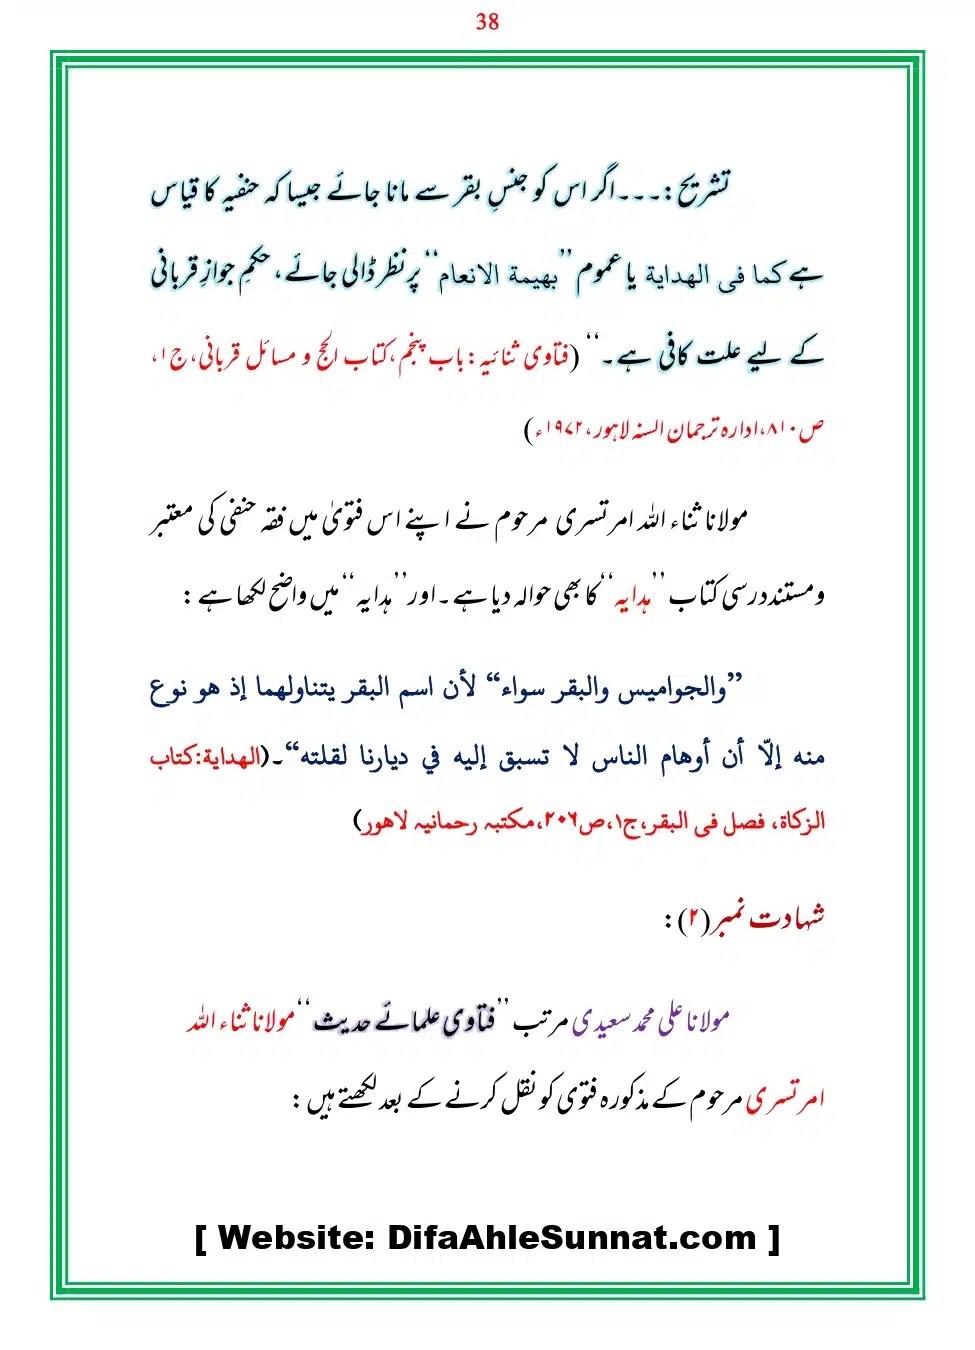 38
تشریح:۔۔۔اگر اس کو جنسِ بقر سے مانا جائے جیسا کہ حنفیہ کا قیاس
ہے کما فی الهدایة یا عموم ’’بهیمة الانعام‘‘ پر نظر ڈالی جائے، حکمِ جوازِ قربانی
کے لیے علت کافی ہے۔‘‘ (فتاوی ثنائیہ: باب پنجم، کتاب الحج و مسائل قربانی، ج۱،
ص۸۱۰، ادارہ ترجمان السنہ لاہور، ۱۹۷۲ء)
مولانا ثناء اللہ امرتسری مرحوم نے اپنے اس فتویٰ میں فقہ حنفی کی معتبر
ومستند درسی کتاب ’’ہدایہ‘‘ کا بھی حوالہ دیا ہے۔ اور ’’ہدایہ‘‘ میں واضح لکھا ہے:
”والجواميس والبقر سواء“ لأن اسم البقر يتناولهما إذ هو نوع
منه إلّا أن أوهام الناس لا تسبق إليه في ديارنا لقلته“۔(الهداية:کتاب
الزکاة، فصل فی البقر،ج۱،ص۲۰۶،مکتبہ رحمانیہ لاهور)
شہادت نمبر (۲):
مولانا علی محمد سعیدی مرتب ’’فتاوی علمائے حدیث‘‘ مولانا ثناء اللہ
امرتسری مرحوم کے مذکورہ فتوی کو نقل کرنے کے بعد لکھتے ہیں:
[ Website: DifaAhleSunnat.com ]